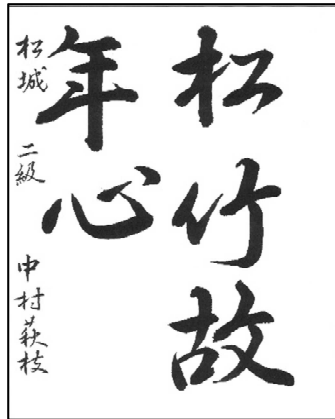 松竹故
年心
松城 二級 中村萩枝